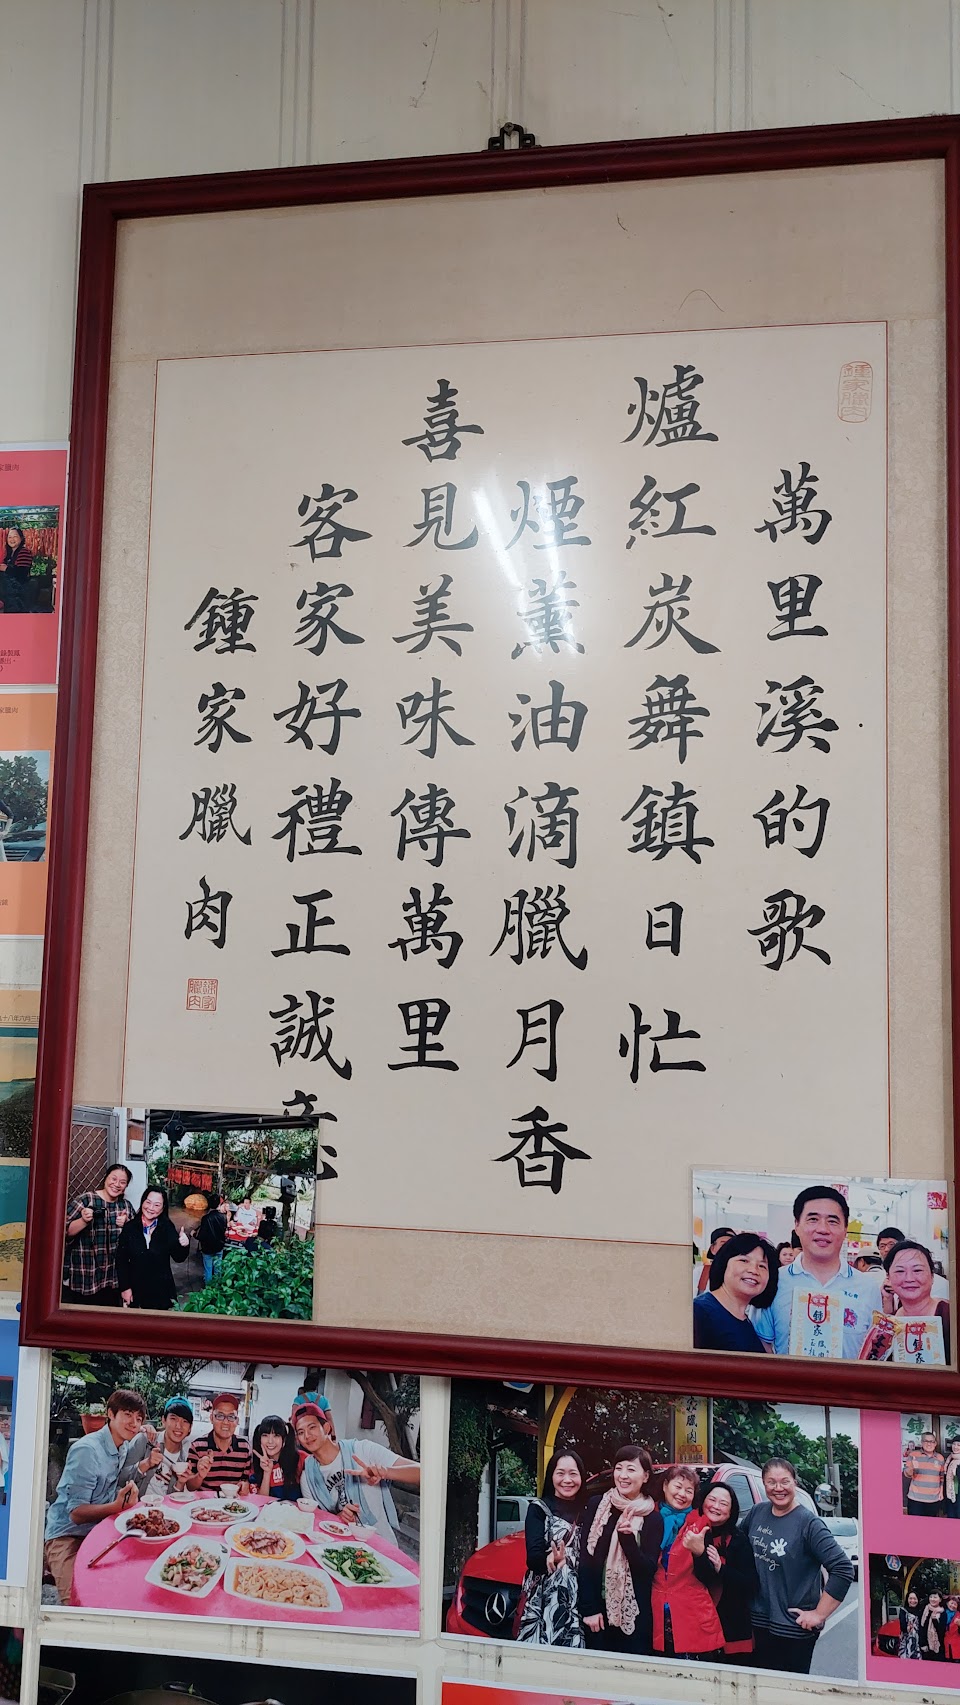 鍾家臘肉
萬里溪的歌
爐紅炭舞鎮日忙
煙薰油滴臘月香
喜見美味傳萬里
客家好禮正誠意
鍾家臘肉
鍾家臘肉